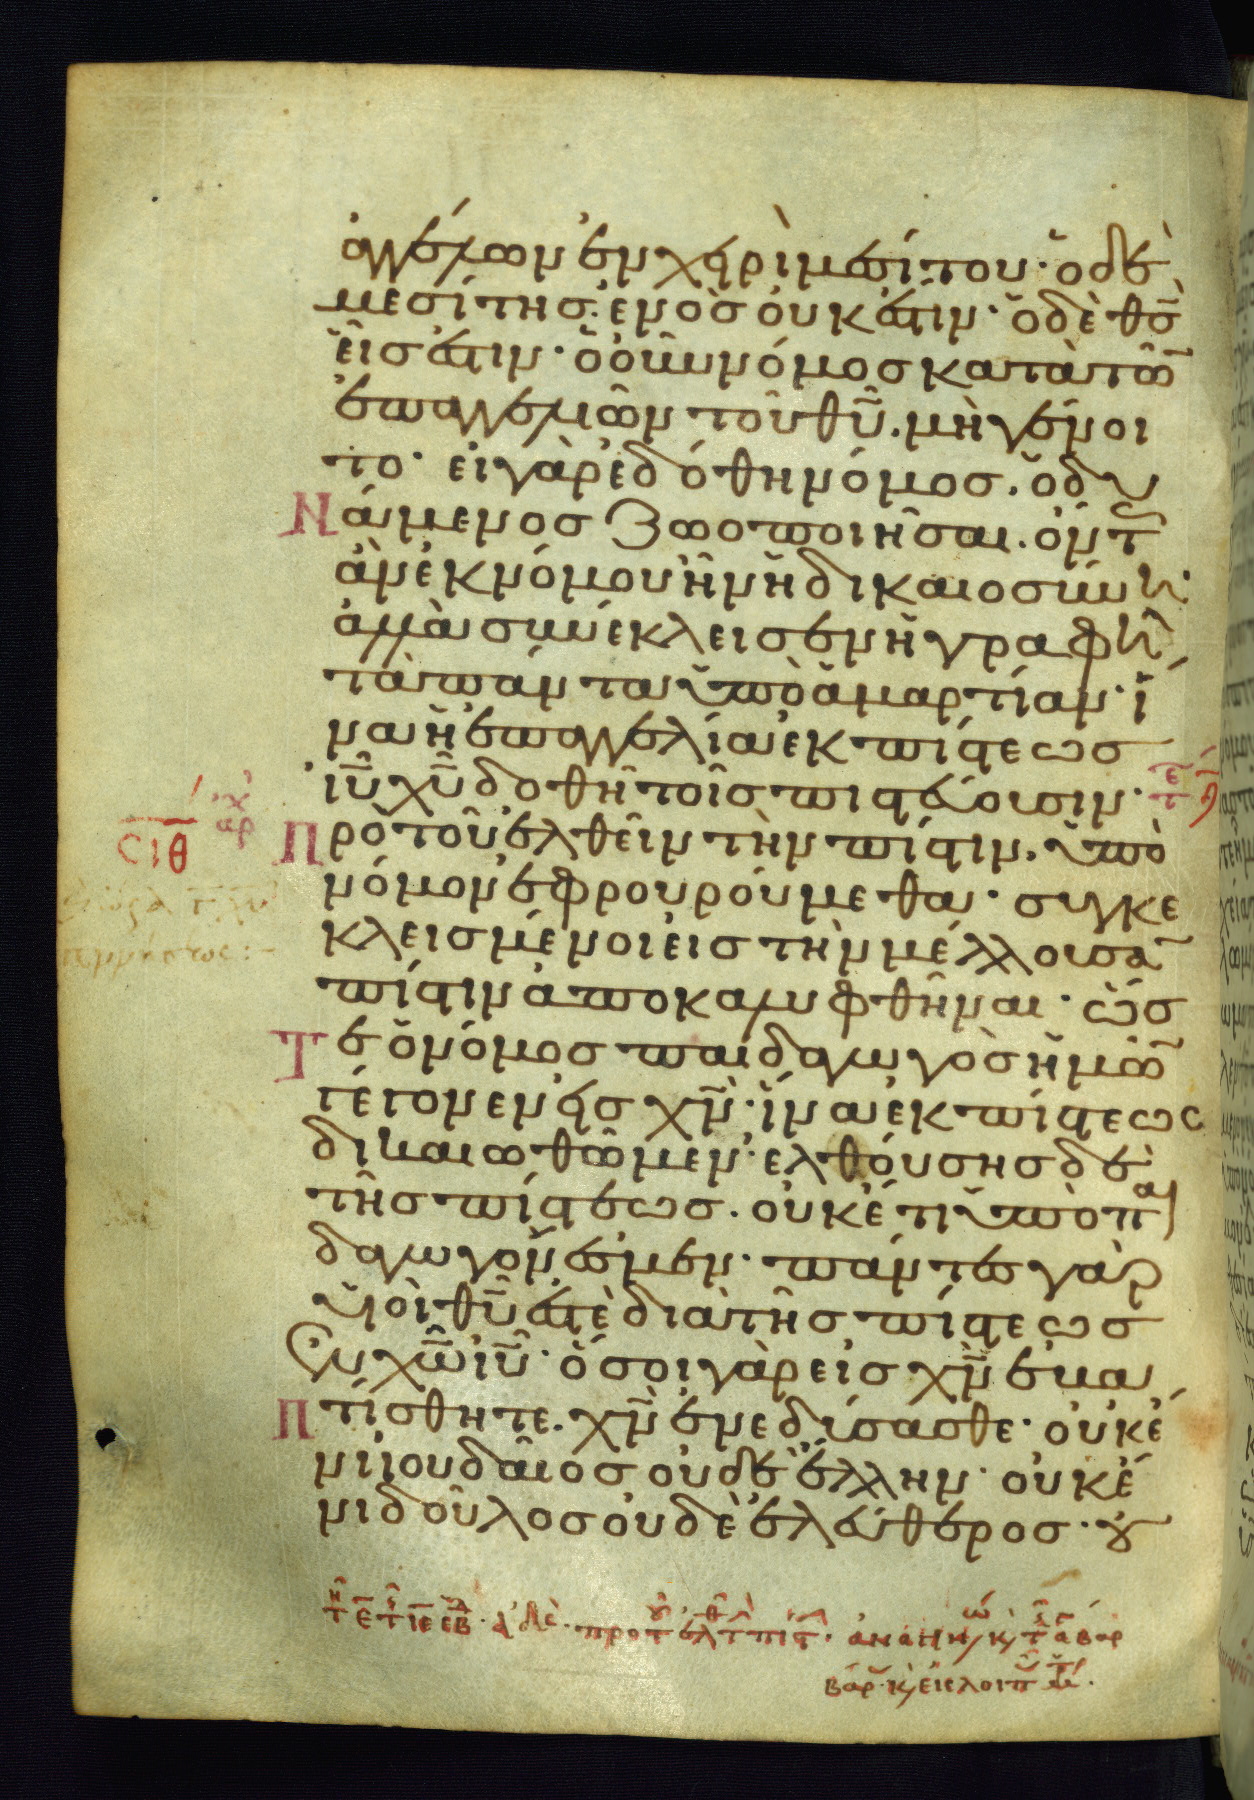 ἀγγέλων ἐν χειρὶ μεσίτου· ὁ δὲ
μεσίτης ἑνὸς οὐκ ἔστιν· ὁ δὲ θ̅σ̅
εἷς ἐστιν· ὁ οὖν νόμος κατὰ τῶ̅
ἐπαγγελιῶν τοῦ θ̅υ̅. μὴ γένοι
το· εἰ γὰρ ἐδόθη νόμος. ὁ δυ
Νάμενος ζωοποιῆσαι. ὄντ̅
ἂν ἐκ νόμου ἦν ἡ δικαιοσύνη·
ἀλλὰ συνέκλεισεν ἡ γραφὴ
τὰ πάντα ὑπὸ ἁμαρτίαν· ἵ
να ἡ ἐπαγγελία ἐκ πίστεως
ι̅υ̅ χ̅υ̅ δοθῆ τοῖς πιστεύουσιν·
Πρὸ τοῦ ἐλθεῖν τὴν πίστιν. ὑπὸ
νόμον ἐφρουρούμεθα· συγκε
κλεισμένοι εἰς τὴν μέλλουσα̅
πίστιν ἀποκαλυφθῆναι· ὥσ
Τε ὁ νόμος παιδαγωγὸς ἡμῶ̅
γέγονεν εἰς χ̅ν̅· ἵνα ἐκ πίστεως
δικαιωθῶμεν· ελθούσης δὲ
τῆς πίστεως. οὐκέτι ὑπὸ παι
δαγωγόν ἐσμεν· πάντες γὰρ
υἱοὶ θ̅υ̅ ἐστὲ διὰ τῆς πίστεως
Ἐν χ̅ω̅ ι̅υ̅· ὅσοι γὰρ εἰς χ̅ν̅ ἐβα
Πτίσθητε. χ̅ν̅ ἐνεδύσασθε· οὐκ ἔ
νι ἰουδαῖος οὐδὲ ἕλλην· οὐκ ἔ
νι δοῦλος οὐδὲ ἐλεύθερος· οὐ
ἀρχ
σ̅ι̅θ̅